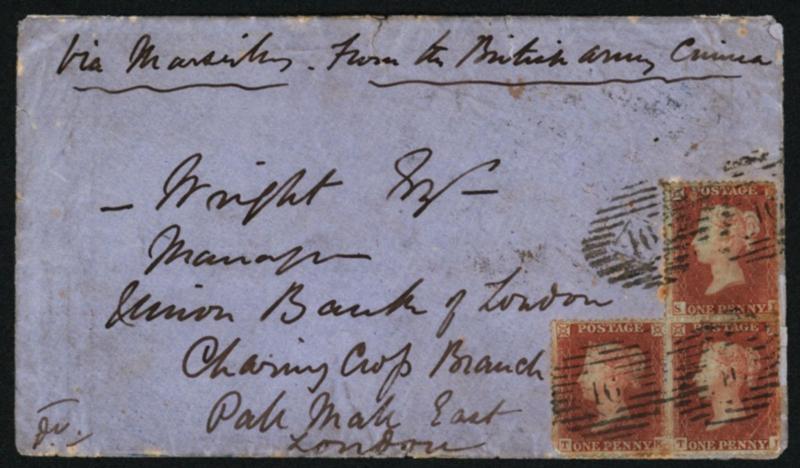 Via Marseilles. From the British army Crimea
— Wright Esq —
Manager
Union Bank of London
Charing Cross Branch
Pall Mall East
London
POSTAGE
S ONE PENNY I
POSTAGE
T ONE PENNY
POSTAGE
T ONE PENNY I